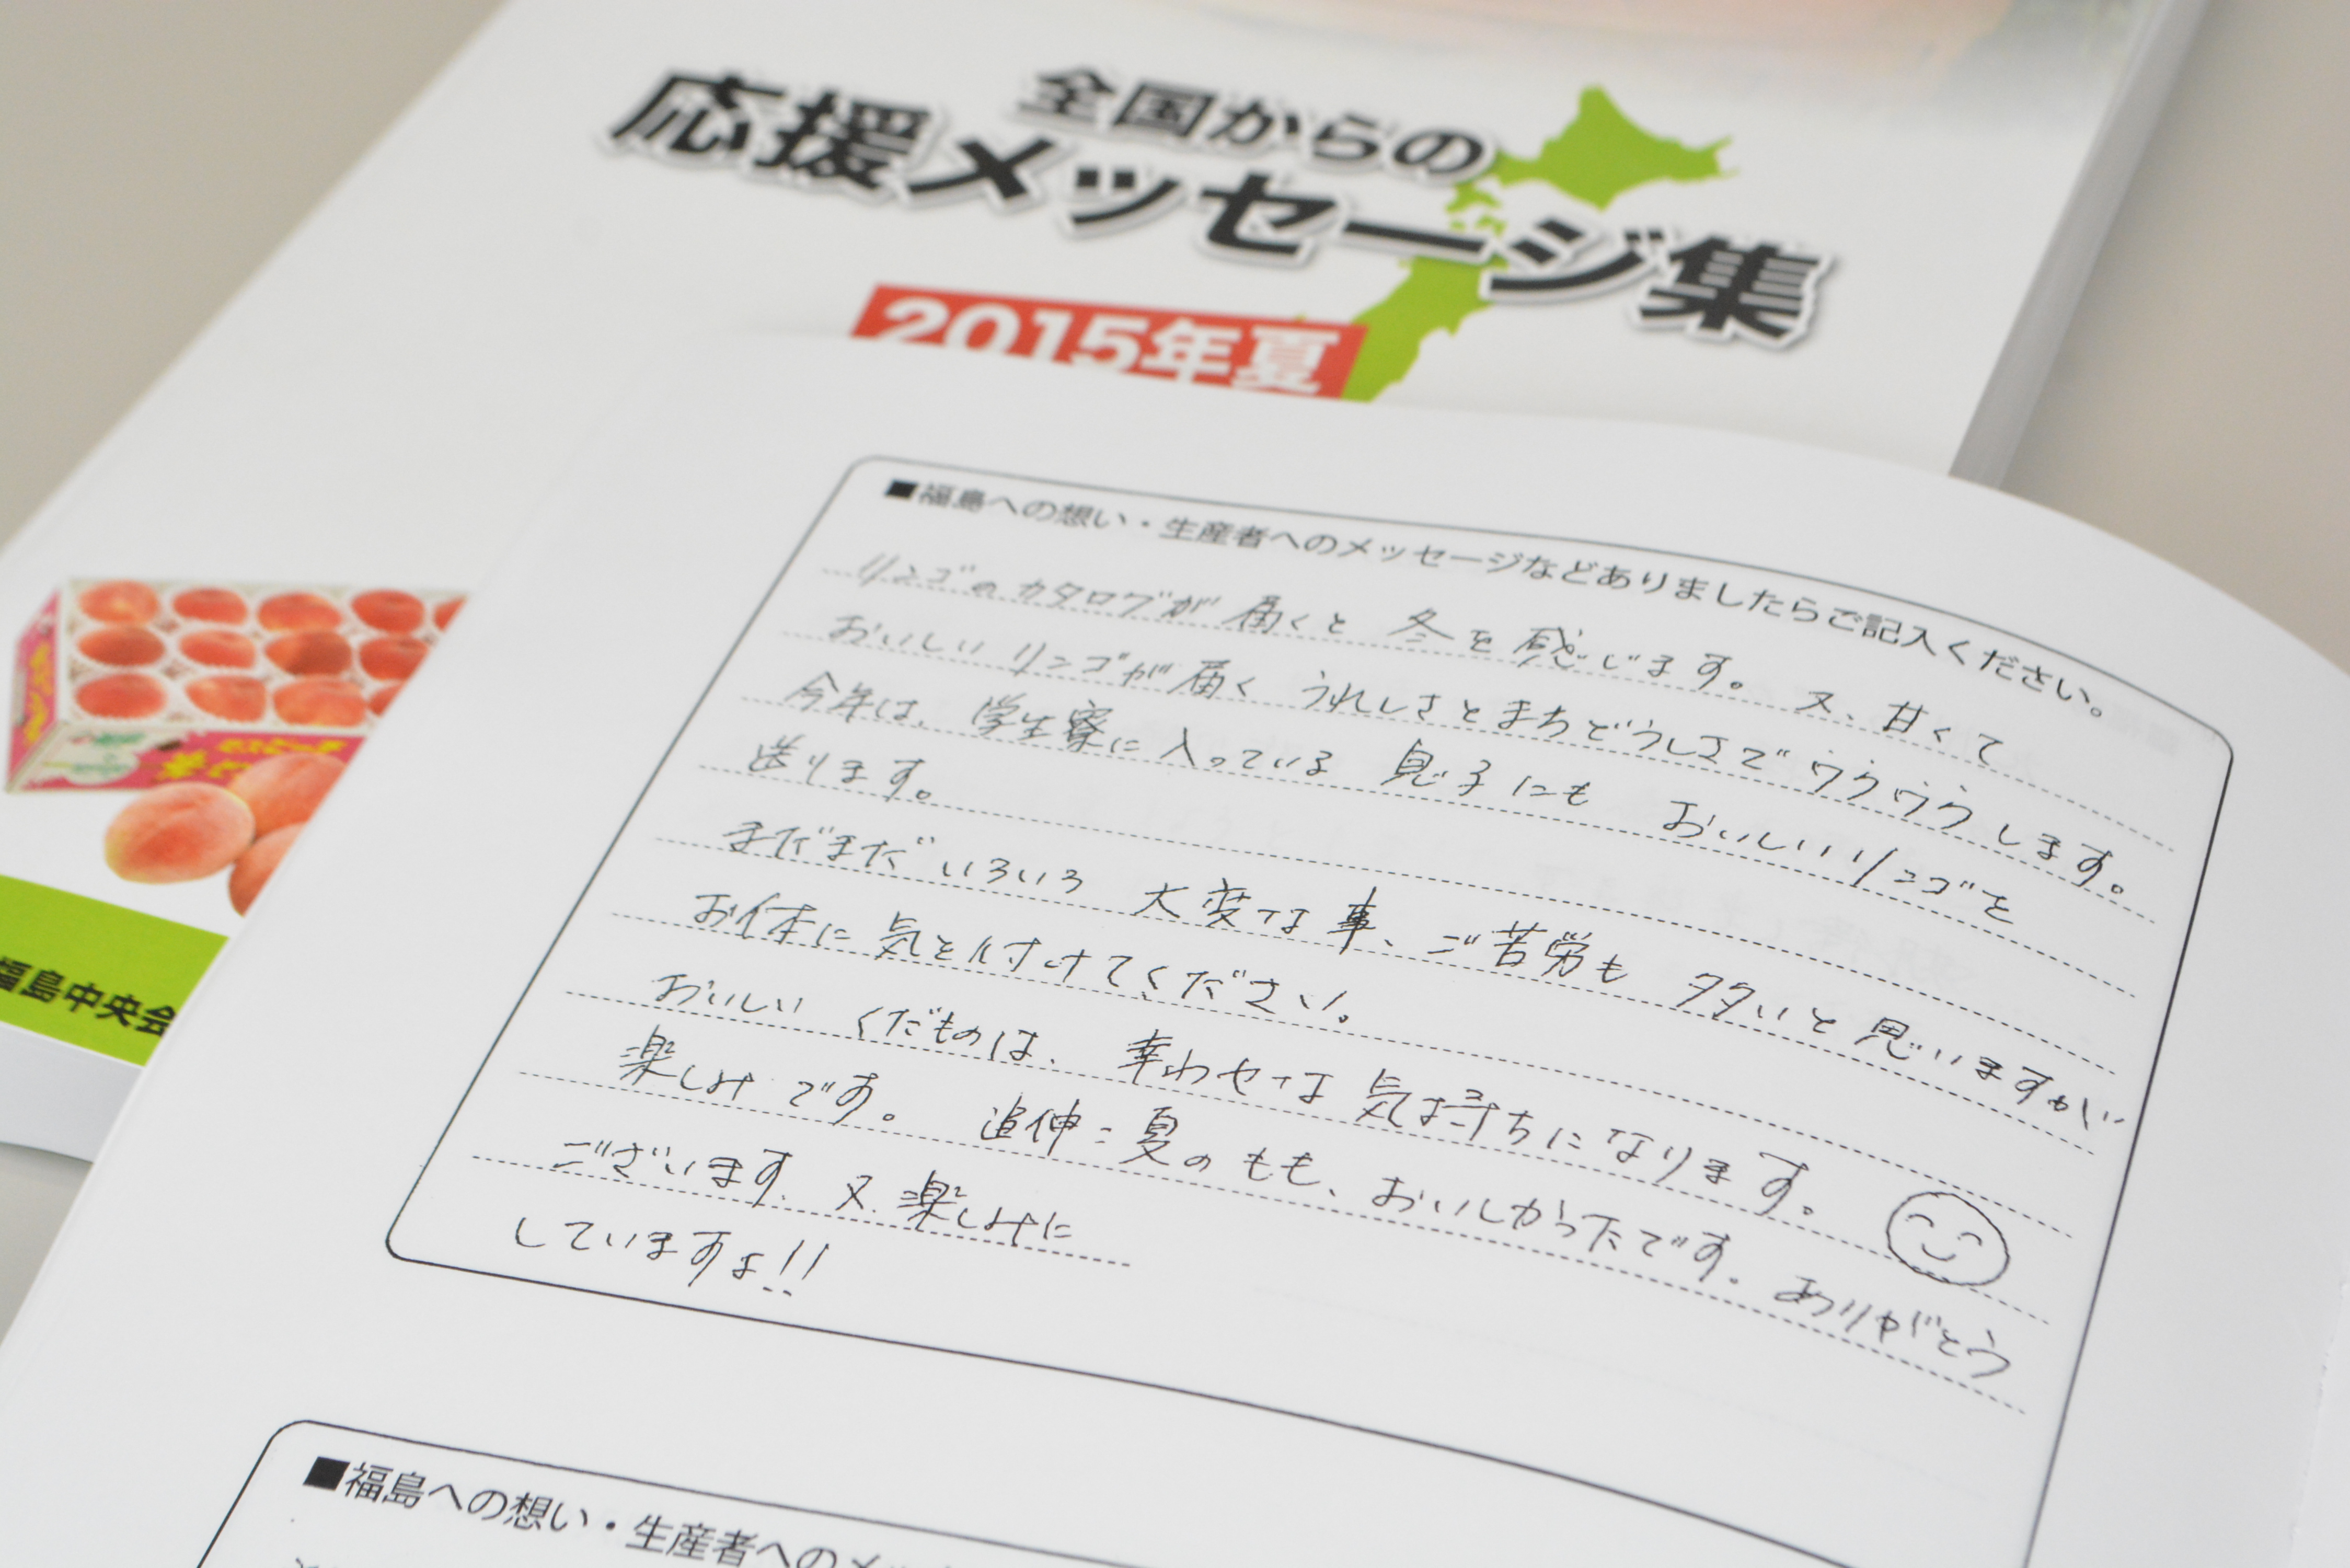 全国からの
応援メッセージ集
2015年夏
福島中央会
■福島への想い・生産者へのメッセージなどありましたらご記入ください。
リンゴのカタログが届くと冬を感じます。又、甘くて
おいしいリンゴが届くうれしさとまちどうしさでワクワクします。
今年は、学生寮に入っている息子にもおいしいリンゴを
送ります。
まだまだいろいろ大変な事、ご苦労も多いと思いますが
お体に気を付けてください。
おいしいくだものは、幸わせな気持ちになります。
楽しみです。追伸:夏のもも、おいしかったです。ありがとう
ございます。又、楽しみに
していますよ!!
■福島への想い・生産者への